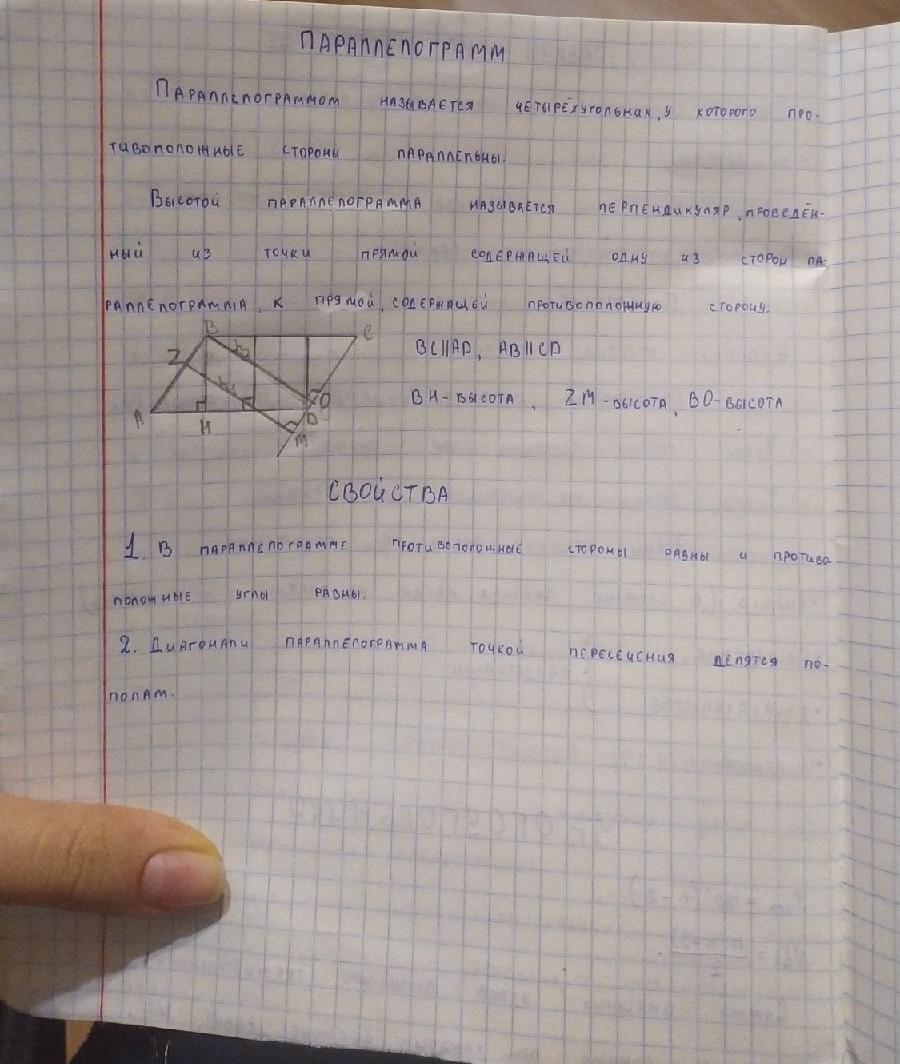 ПАРАЛЛЕЛОГРАММ
Параллелограммом называется четырёхугольник, у которого про-
тивоположные стороны параллельны.
Высотой параллелограмма называется перпендикуляр, проведён-
ный из точки прямой содержащей одну из сторон па-
раллелограмма, к прямой, содержащей противоположную сторону.
B C
Z h₂
BC||AD, AB||CD
h₁
O
BH-высота, ZM-высота, BO-высота
A H D
M
СВОЙСТВА
1. В параллелограмме противоположные стороны равны и противо
положные углы равны.
2. Диагонали параллелограмма точкой пересечения делятся по-
полам.